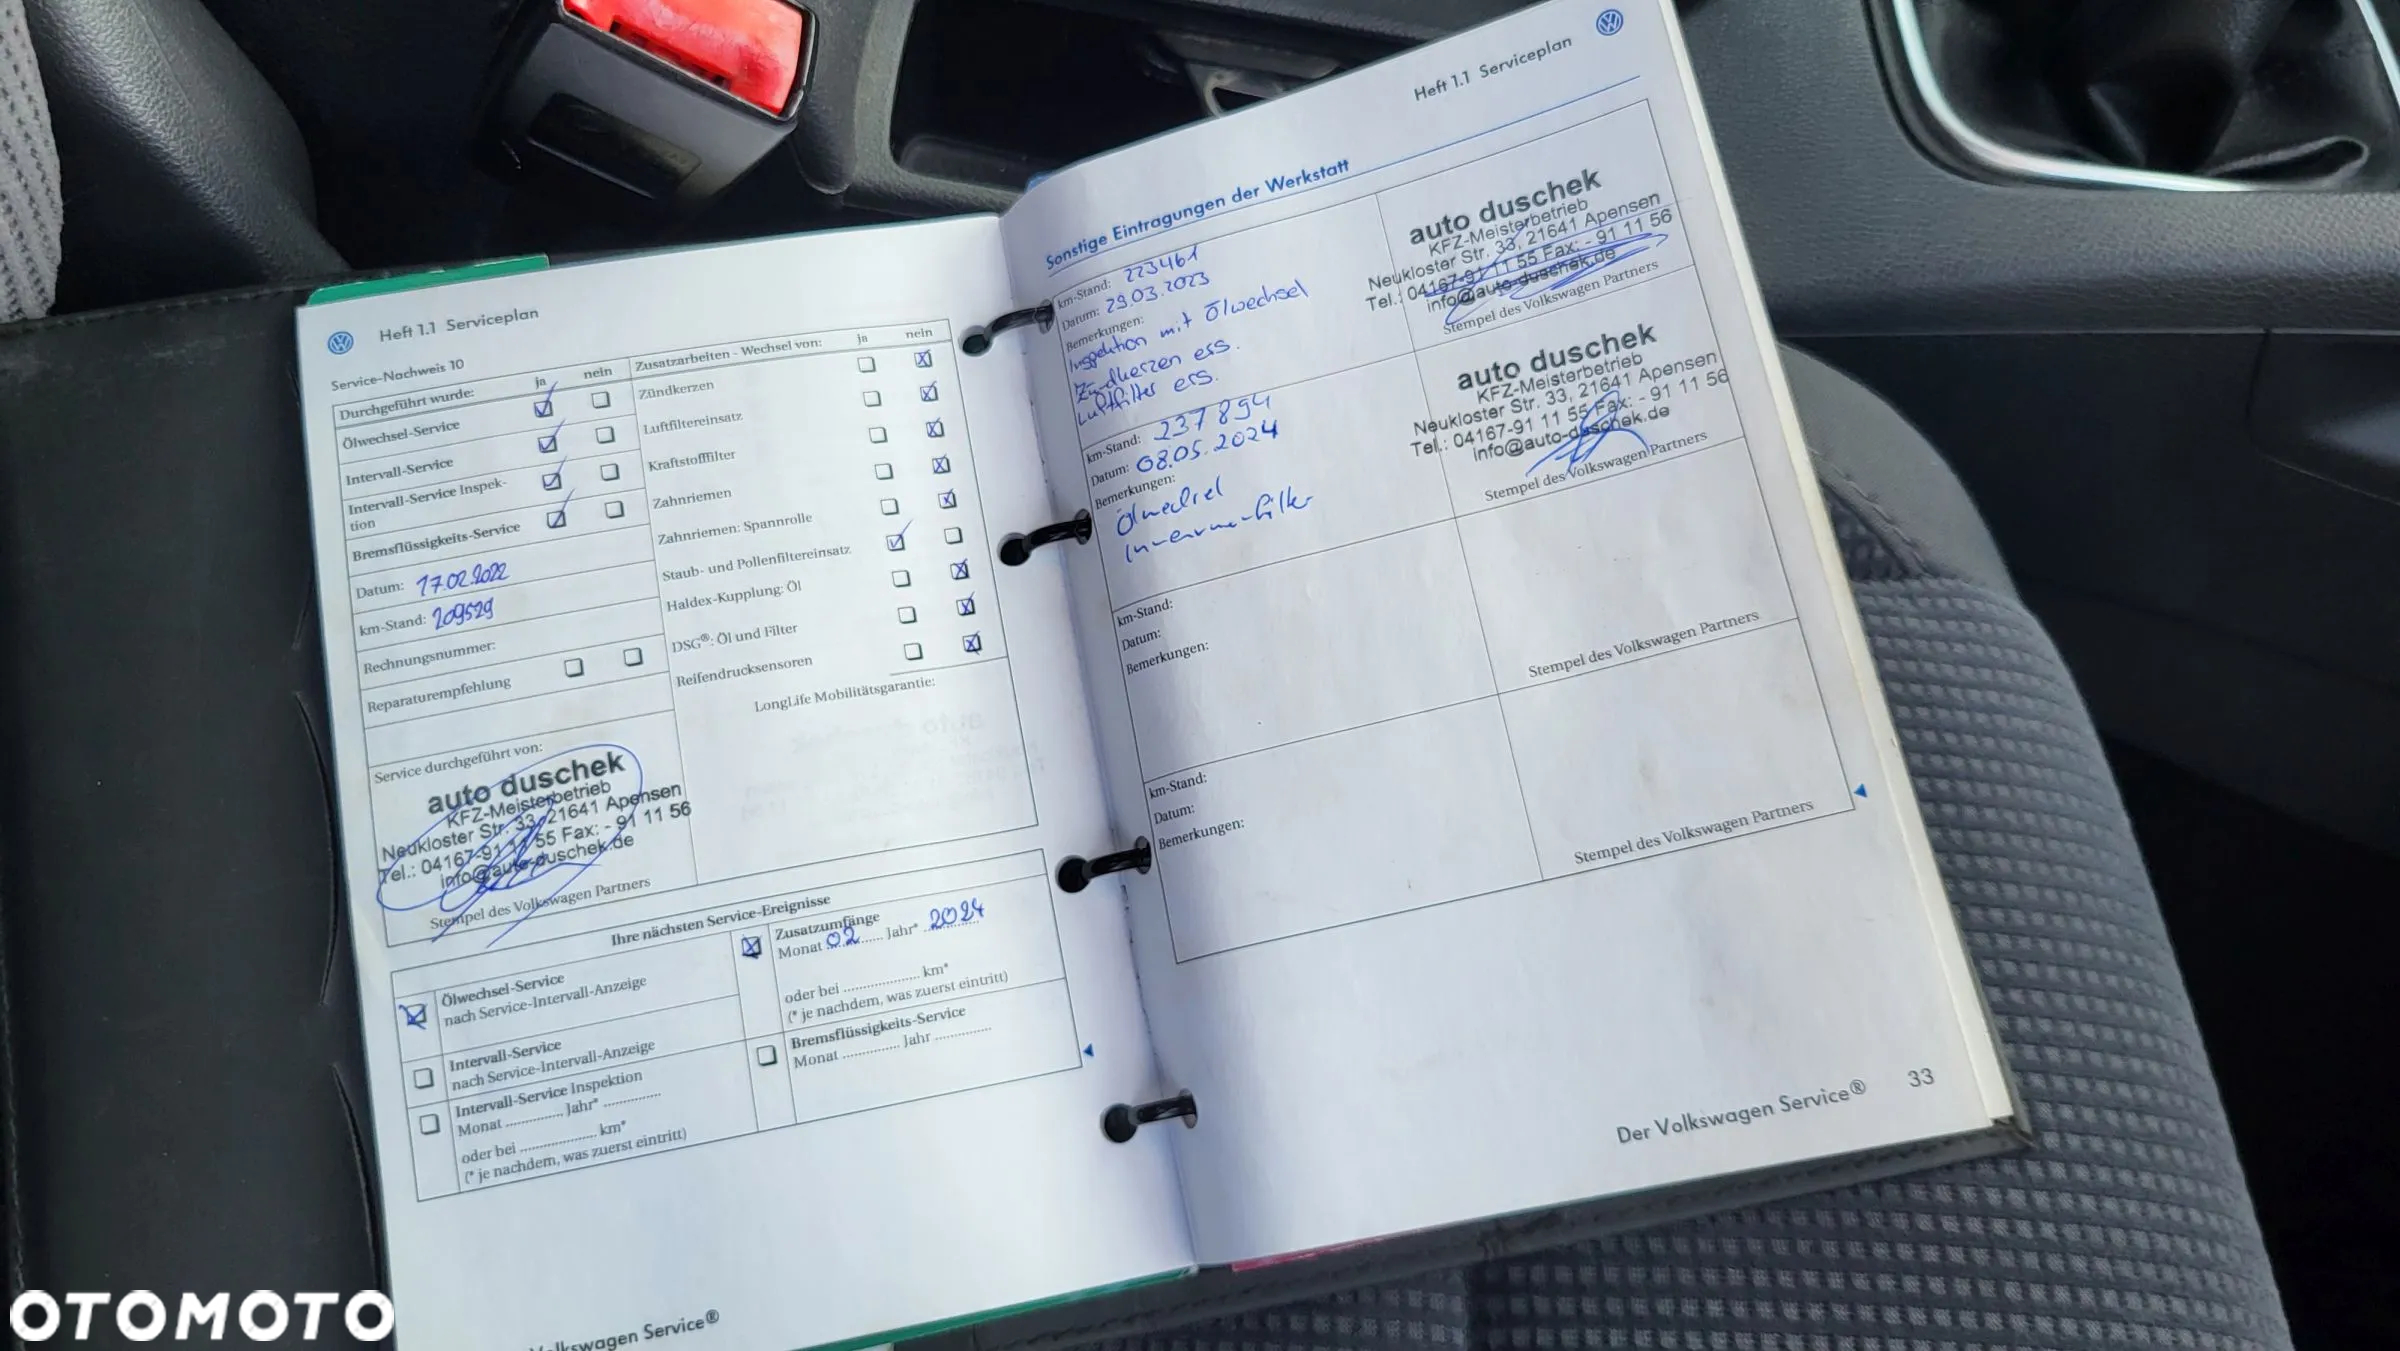 Heft 1.1 Serviceplan
Service-Nachweis 10
Durchgeführt wurde: ja nein
Ölwechsel-Service
Intervall-Service
Intervall-Service Inspek-
tion
Bremsflüssigkeits-Service
Datum: 17.02.2022
km-Stand: 209529
Rechnungsnummer:
Reparaturempfehlung
Service durchgeführt von:
auto duschek
KFZ-Meisterbetrieb
Neukloster Str. 33, 21641 Apensen
Tel.: 04167-91 11 55 Fax: - 91 11 56
info@auto-duschek.de
Stempel des Volkswagen Partners
Zusatzarbeiten - Wechsel von: ja nein
Zündkerzen
Luftfiltereinsatz
Kraftstofffilter
Zahnriemen
Zahnriemen: Spannrolle
Staub- und Pollenfiltereinsatz
Haldex-Kupplung: Öl
DSG®: Öl und Filter
Reifendrucksensoren
LongLife Mobilitätsgarantie:
Ihre nächsten Service-Ereignisse
Ölwechsel-Service
nach Service-Intervall-Anzeige
Intervall-Service
nach Service-Intervall-Anzeige
Intervall-Service Inspektion
Monat ............ Jahr* ............
oder bei .................... km*
(* je nachdem, was zuerst eintritt)
Zusatzumfänge
Monat 02 Jahr* 2024
oder bei .................... km*
(* je nachdem, was zuerst eintritt)
Bremsflüssigkeits-Service
Monat ............ Jahr ............
Volkswagen Service®
Heft 1.1 Serviceplan
Sonstige Eintragungen der Werkstatt
km-Stand: 223461
Datum: 29.03.2023
Bemerkungen:
Inspektion mit Ölwechsel
Zündkerzen ers.
Luftfilter ers.
auto duschek
KFZ-Meisterbetrieb
Neukloster Str. 33, 21641 Apensen
Tel.: 04167-91 11 55 Fax: - 91 11 56
info@auto-duschek.de
Stempel des Volkswagen Partners
km-Stand: 237894
Datum: 08.05.2024
Bemerkungen:
Ölwechsel
Innenraumfilter
auto duschek
KFZ-Meisterbetrieb
Neukloster Str. 33, 21641 Apensen
Tel.: 04167-91 11 55 Fax: - 91 11 56
info@auto-duschek.de
Stempel des Volkswagen Partners
km-Stand:
Datum:
Bemerkungen:
Stempel des Volkswagen Partners
km-Stand:
Datum:
Bemerkungen:
Stempel des Volkswagen Partners
Der Volkswagen Service® 33
OTOMOTO